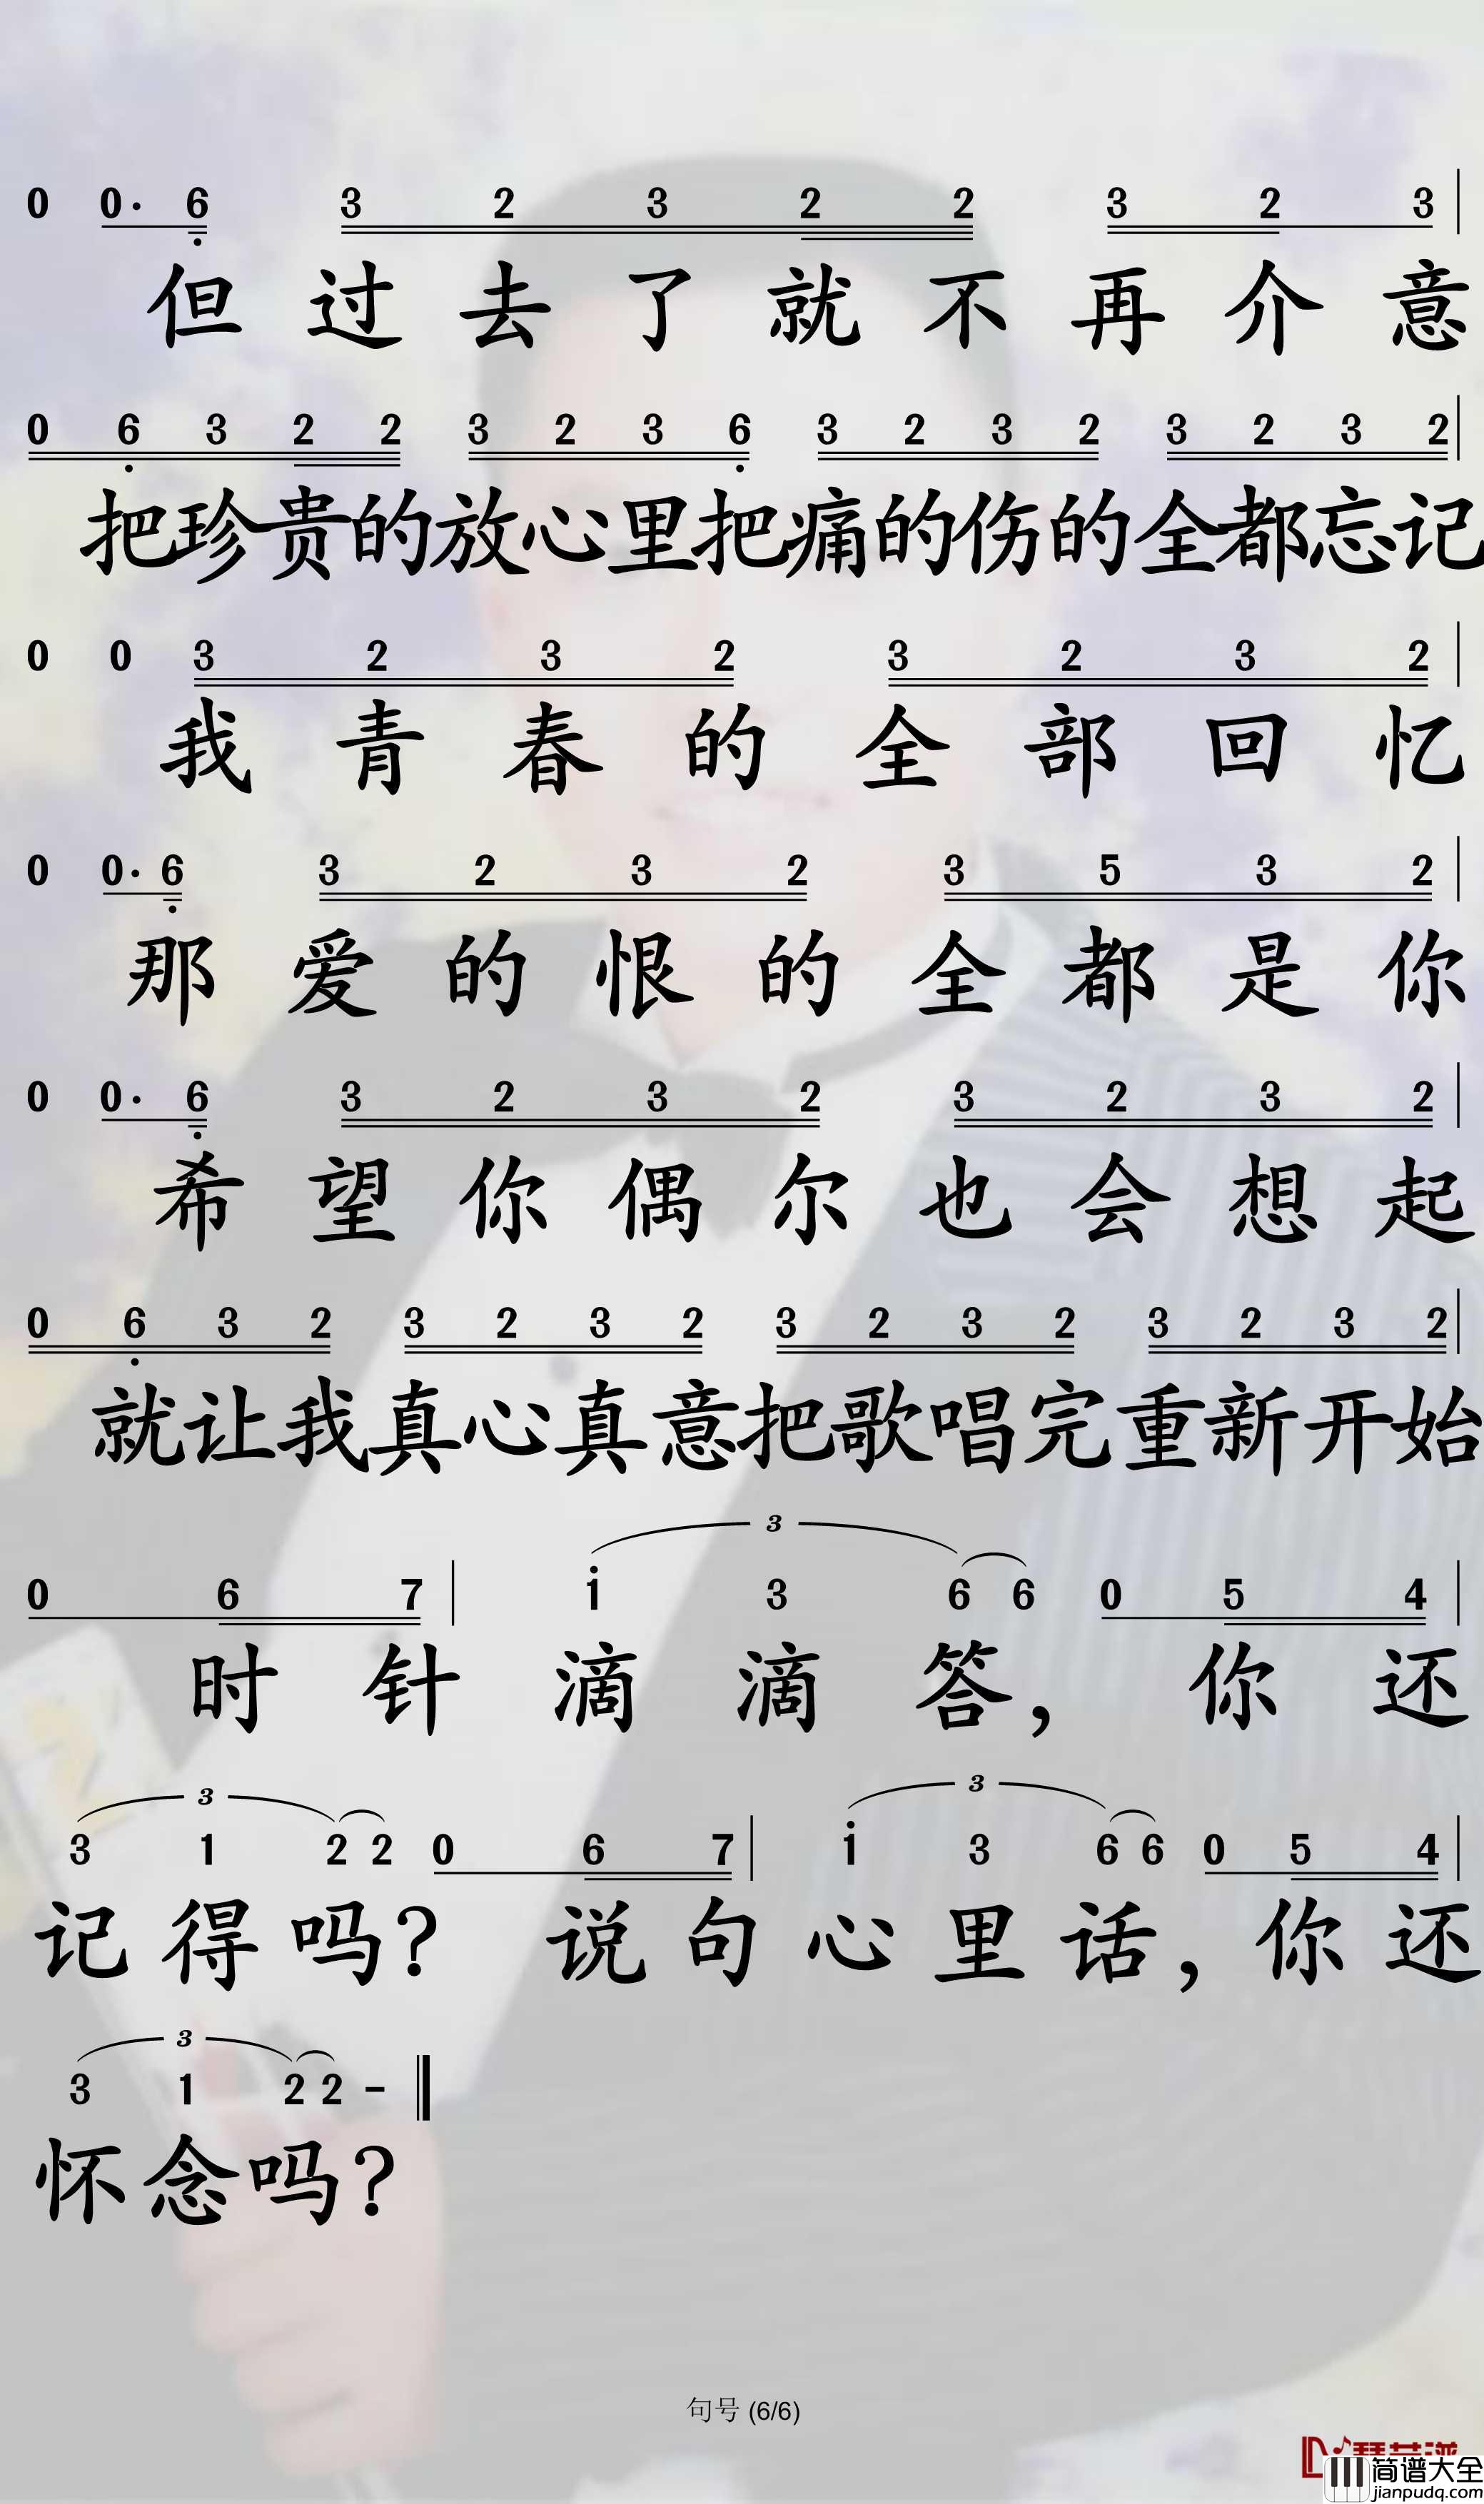 0 0· 6 3 2 3 2 2 3 2 3
但过去了就不再介意
0 6 3 2 2 3 2 3 6 3 2 3 2 3 2 3 2
把珍贵的放心里把痛的伤的全都忘记
0 0 3 2 3 2 3 2 3 2
我青春的全部回忆
0 0· 6 3 2 3 2 3 5 3 2
那爱的恨的全都是你
0 0· 6 3 2 3 2 3 2 3 2
希望你偶尔也会想起
0 6 3 2 3 2 3 2 3 2 3 2 3 2 3 2
就让我真心真意把歌唱完重新开始
3
0 6 7 1 3 6 6 0 5 4
时针滴滴答，你还
3 3
3 1 2 2 0 6 7 1 3 6 6 0 5 4
记得吗？说句心里话，你还
3
3 1 2 2 -
怀念吗？
句号 (6/6)
简谱大全
jianpudq.com